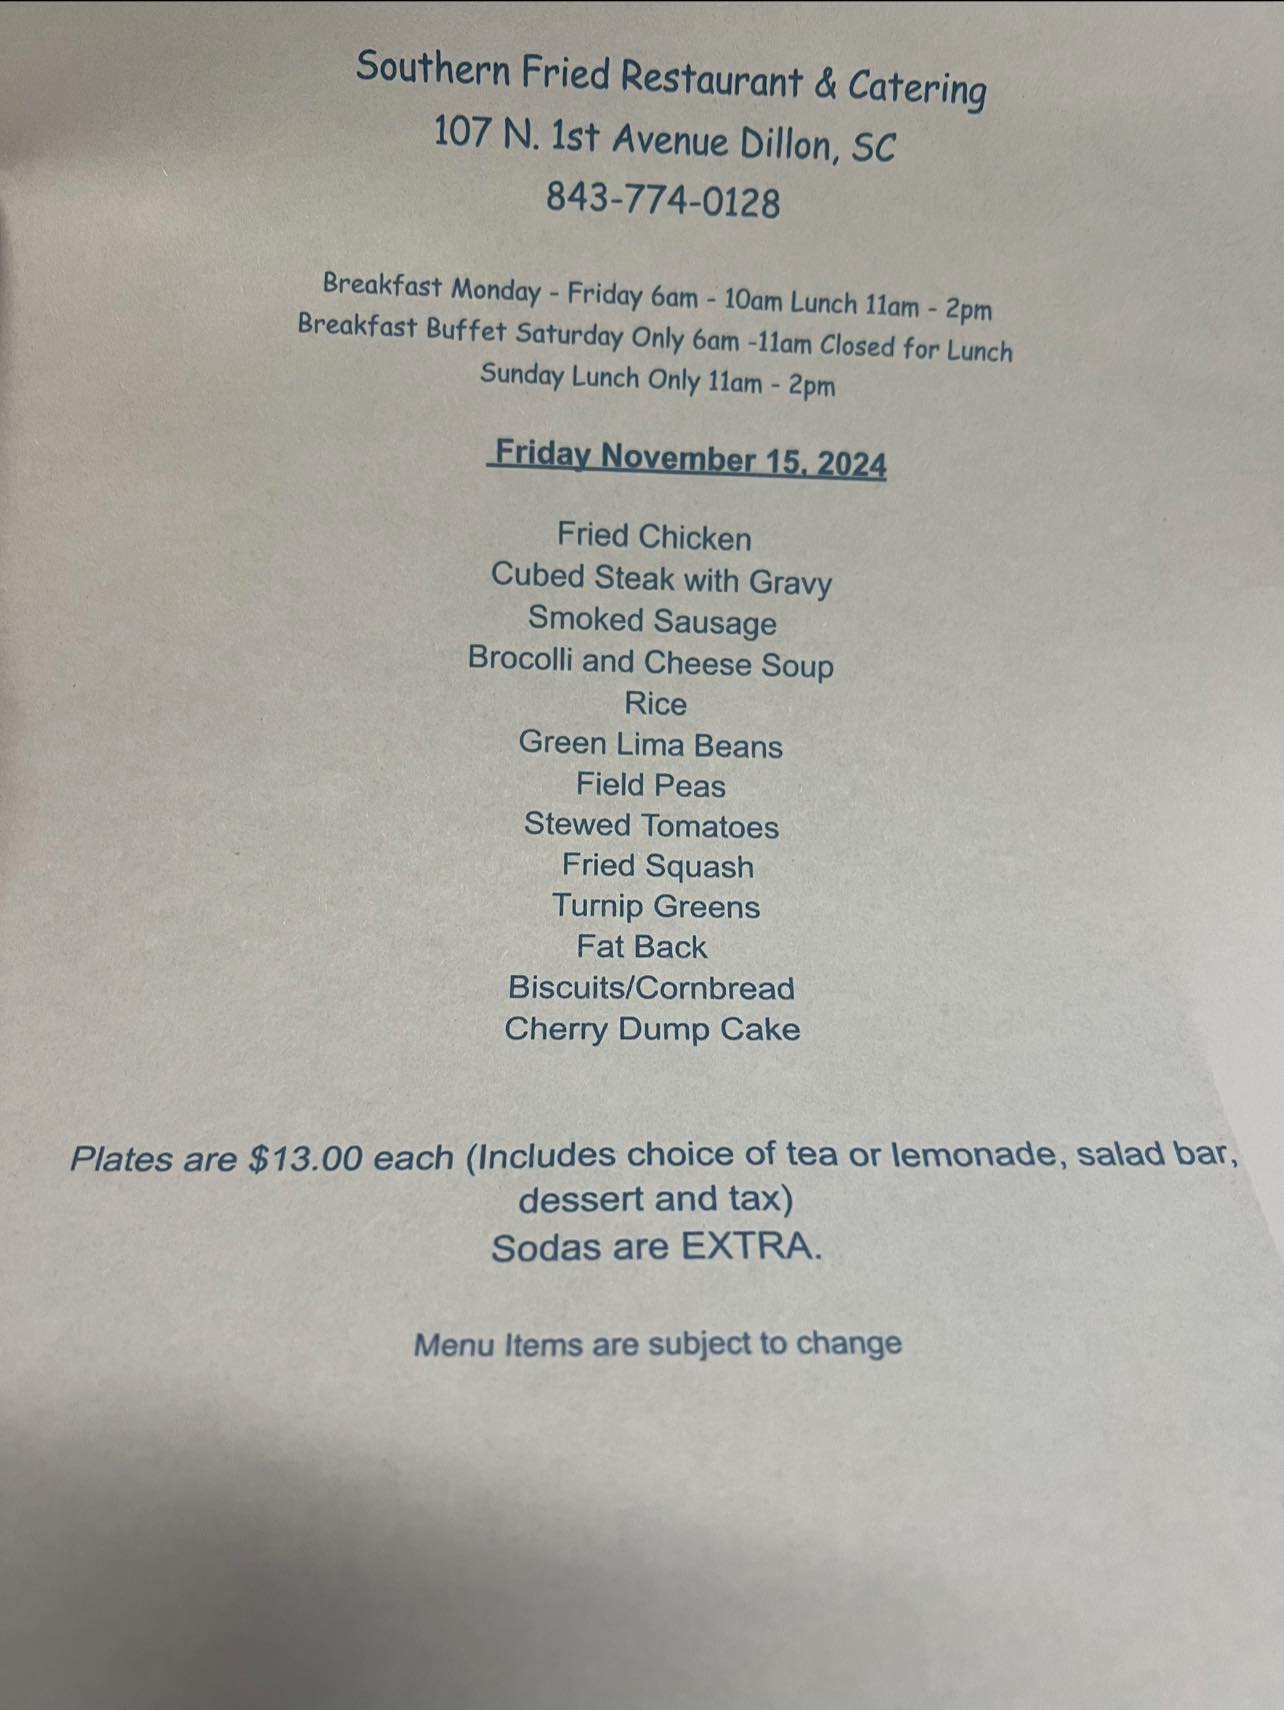 Southern Fried Restaurant & Catering
107 N. 1st Avenue Dillon, SC
843-774-0128
Breakfast Monday - Friday 6am - 10am Lunch 11am - 2pm
Breakfast Buffet Saturday Only 6am -11am Closed for Lunch
Sunday Lunch Only 11am - 2pm
Friday November 15, 2024
Fried Chicken
Cubed Steak with Gravy
Smoked Sausage
Brocolli and Cheese Soup
Rice
Green Lima Beans
Field Peas
Stewed Tomatoes
Fried Squash
Turnip Greens
Fat Back
Biscuits/Cornbread
Cherry Dump Cake
Plates are $13.00 each (Includes choice of tea or lemonade, salad bar,
dessert and tax)
Sodas are EXTRA.
Menu Items are subject to change